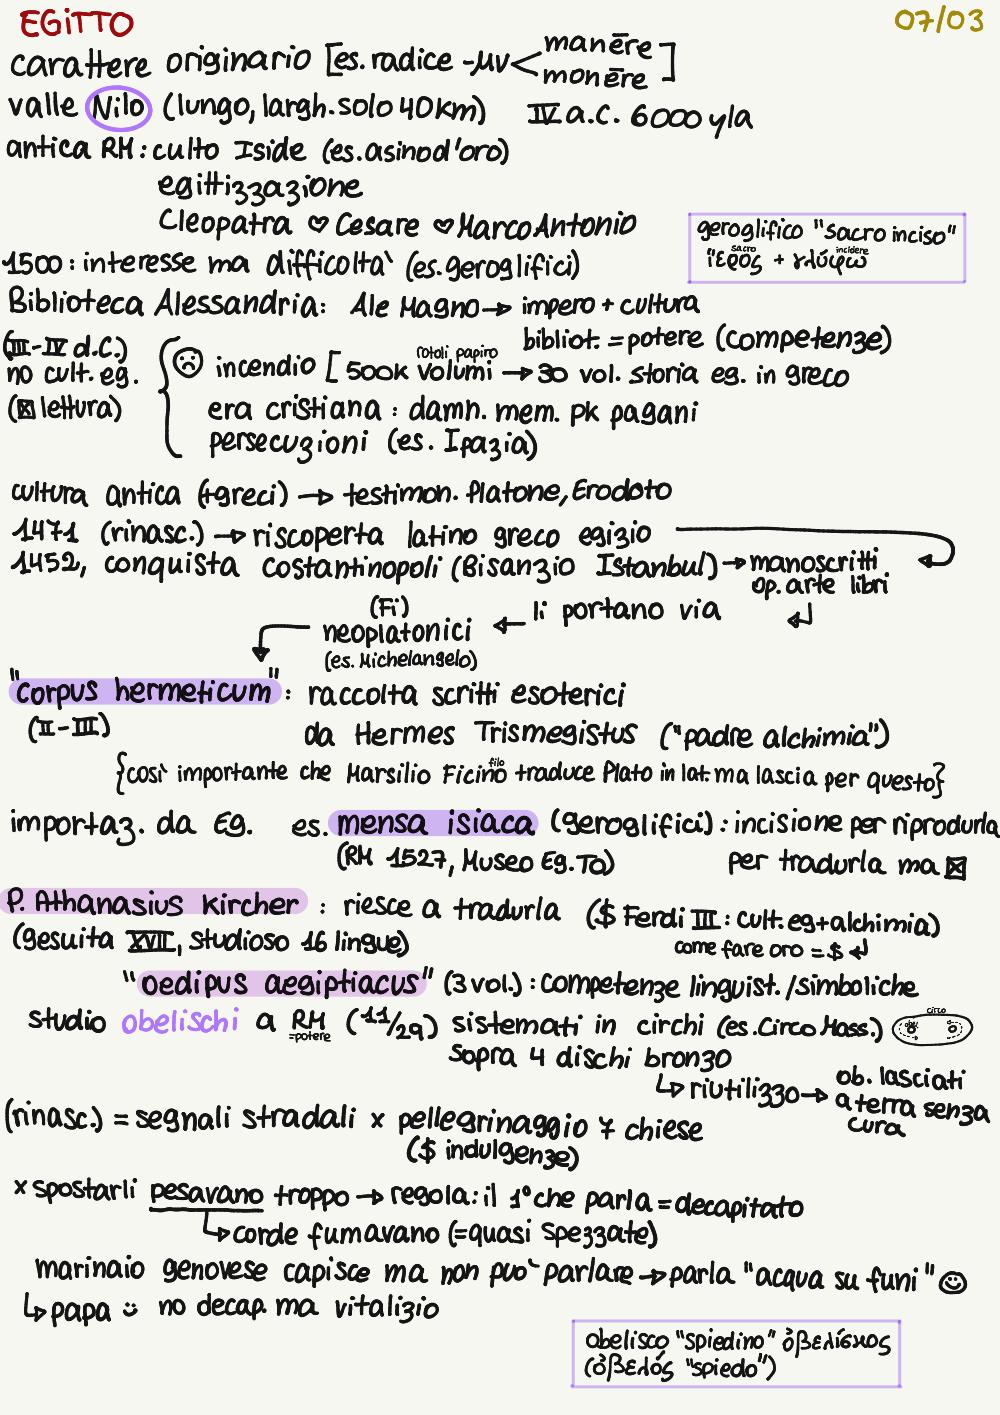 EGITTO
07/03
carattere originario [es. radice -μν < manēre
monēre]
valle Nilo (lungo, largh. solo 40 Km) IV a.C. 6000 y/a
antica RM: culto Iside (es. asino d'oro)
egittizzazione
Cleopatra ♡ Cesare ♡ Marco Antonio
geroglifico "sacro inciso"
sacro incidere
ἱερός + γλύφω
1500: interesse ma difficoltà (es. geroglifici)
Biblioteca Alessandria: Ale Magno → impero + cultura
bibliot. = potere (competenze)
(III-IV d.C.)
no cult. eg.
(☒ lettura)
☹ incendio [500k volumi → 30 vol. storia eg. in greco
rotoli papiro
era cristiana: damn. mem. pk pagani
persecuzioni (es. Ipazia)
cultura antica (+greci) → testimon. Platone, Erodoto
1471 (rinasc.) → riscoperta latino greco egizio
1452, conquista costantinopoli (Bisanzio Istanbul) → manoscritti
op. arte libri
li portano via
(Fi)
neoplatonici ←
(es. Michelangelo)
"corpus hermeticum": raccolta scritti esoterici
(II-III) da Hermes Trismegistus ("padre alchimia")
{così importante che Marsilio Ficino traduce Plato in lat. ma lascia per questo}
filo
importaz. da Eg. es. mensa isiaca (geroglifici): incisione per riprodurla
(RM 1527, Museo Eg. TO) per tradurla ma ☒
P. Athanasius Kircher: riesce a tradurla ($ Ferdi III: cult. eg + alchimia)
(gesuita XVII, studioso 16 lingue) come fare oro = $ ↵
"oedipus aegiptiacus" (3 vol.): competenze linguist./simboliche
studio obelischi a RM (11/29) sistemati in circhi (es. Circo Mass.)
=potere
circo
sopra 4 dischi bronzo
↳ riutilizzo → ob. lasciati
a terra senza
cura
(rinasc.) = segnali stradali x pellegrinaggio 7 chiese
($ indulgenze)
x spostarli pesavano troppo → regola: il 1° che parla = decapitato
↳ corde fumavano (=quasi spezzate)
marinaio genovese capisce ma non può parlare → parla "acqua su funi" ☺
↳ papa ☺ no decap. ma vitalizio
obelisco "spiedino" ὀβελίσκος
(ὀβελός "spiedo")